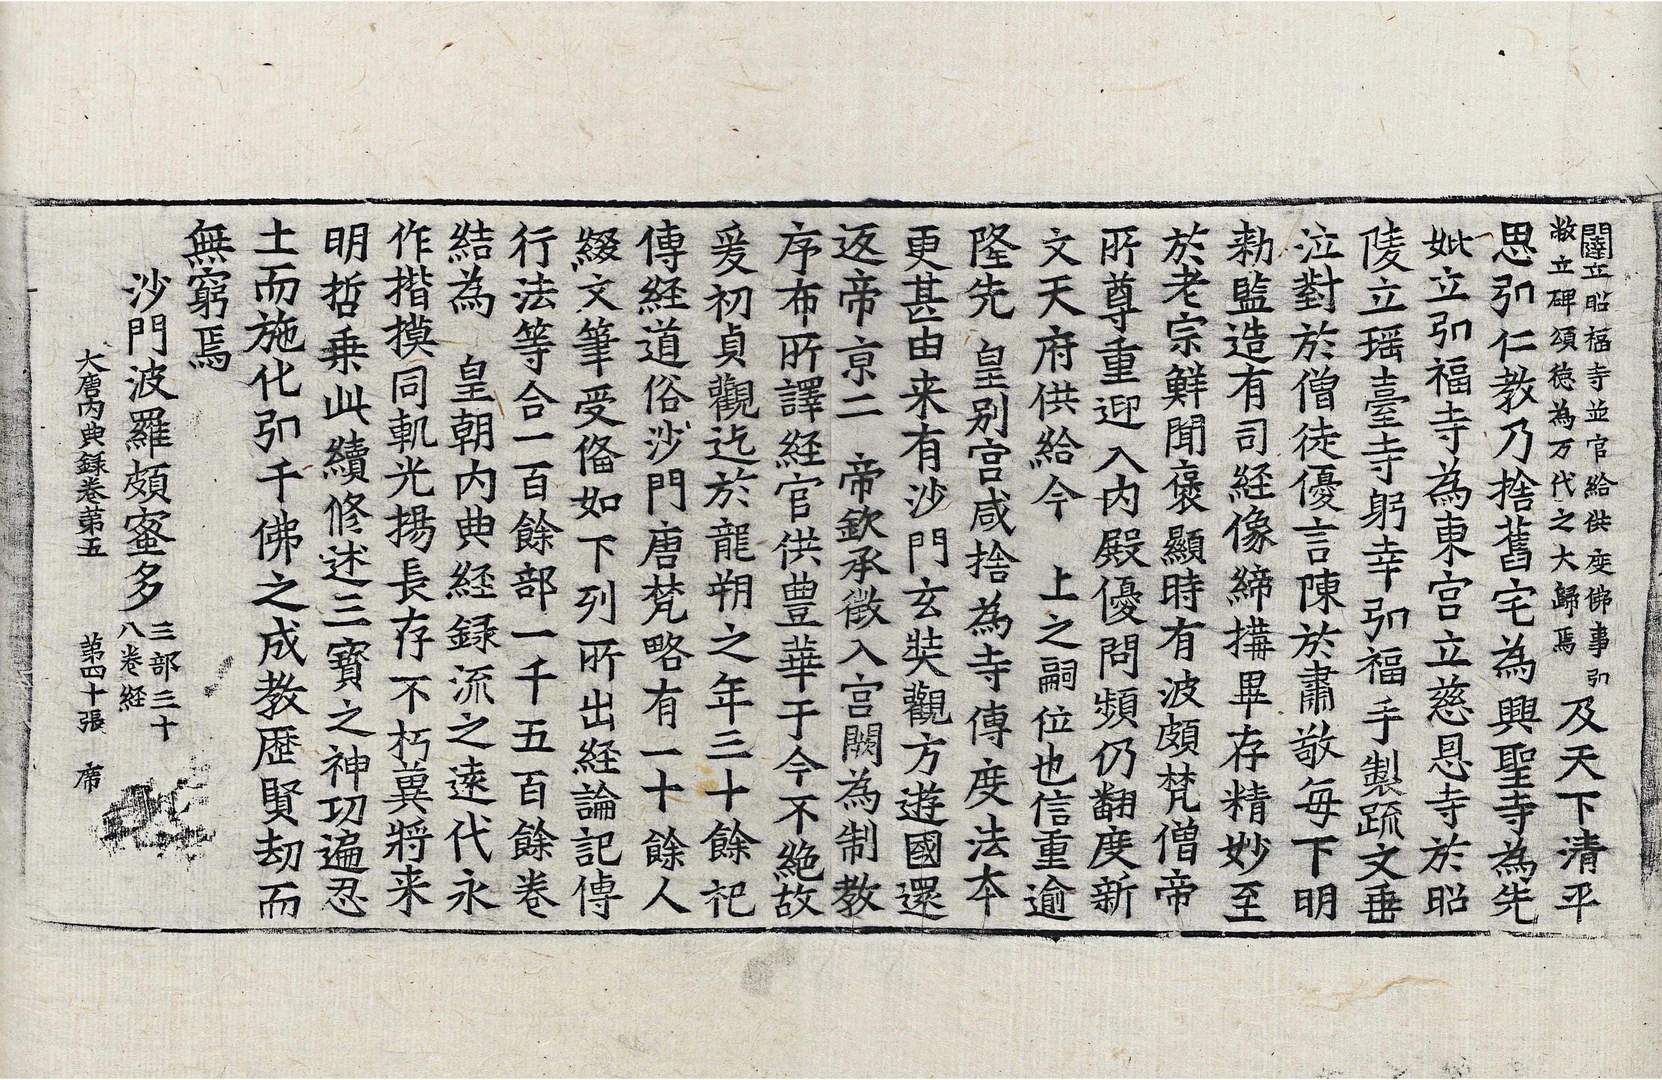 闥立昭福寺並官給供度佛事弘
敞立碑頌徳為万代之大歸焉
及天下清平
思弘仁教乃捨舊宅為興聖寺為先
妣立弘福寺為東宫立慈恩寺於昭
陵立瑶臺寺躬幸弘福手製䟽文垂
泣對於僧徒優言陳於肅敬每下明
勅監造有司経像締搆畢存精妙至
於老宗鮮聞褒顯時有波頗梵僧帝
所尊重迎入内殿優問頻仍翻度新
文天府供給今　上之嗣位也信重逾
隆先　皇别宫咸捨為寺傳度法本
更甚由来有沙門玄奘觀方遊國還
返帝京二　帝欽承徵入宫闕為制教
序布所譯経官供豊華于今不絶故
爰初貞觀迄於龍朔之年三十餘祀
傳経道俗沙門唐梵略有一十餘人
綴文筆受俻如下列所出経論記傳
行法等合一百餘部一千五百餘卷
結為　皇朝内典経録流之遠代永
作揩摸同軌光揚長存不朽兾將来
明哲乗此續修述三寳之神功遍忍
土而施化弘千佛之成教歷賢劫而
無窮焉
沙門波羅頗蜜多三部三十
八卷経
大唐内典録卷第五　第四十張　席